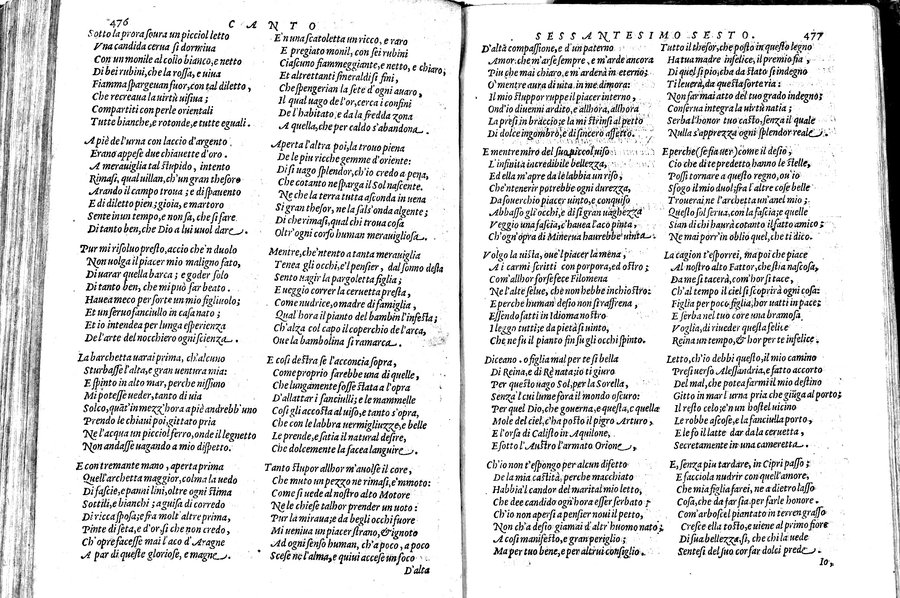 476 CANTO
Sotto la prora soura un picciol letto
Vna candida cerua si dormiua
Con un monile al collo bianco, e netto
Di bei rubini, che la rossa, e uiua
Fiamma spargeuan fuor, con tal diletto,
Che recreaua la uirtù uisiua;
Compartiti con perle orientali
Tutte bianche, e rotonde, e tutte eguali.
A piè de l'urna con laccio d'argento
Erano appese due chiauette d'oro.
A merauiglia tal stupido, intento
Rimasi, qual uillan, ch'un gran thesoro
Arando il campo troua; e di spauento
E di diletto pien; gioia, e martoro
Sente in un tempo, e non sa, che si fare
Di tanto ben, che Dio a lui uuol dare.
Pur mi risoluo presto, accio che'n duolo
Non uolga il piacer mio maligno fato,
Di uarar quella barca; e goder solo
Di tanto ben, che mi può far beato.
Haueа meco per sorte un mio figliuolo;
Et un seruo fanciullo in casa nato;
Et io intendea per lunga esperienza
De l'arte del nocchiero ogni scienza.
La barchetta uarai prima, ch'alcuno
Sturbasse l'alta, e gran uentura mia:
E spinto in alto mar, perche nissuno
Mi potesse ueder, tanto di uia
Solco, quāt'in mezz'hora a piè andrebb'uno
Prendo le chiaui poi, gittato pria
Ne l'acqua un picciol ferro, onde il legnetto
Non andasse uagando a mio dispetto.
E con tremante mano, aperta prima
Quell'archetta maggior, colma la uedo
Di fascie, e panni lini, oltre ogni stima
Sottili, e bianchi; a guisa di corredo
Di ricca sposa; e fra molt'altre prima,
Pinte di seta, e d'or sì che non credo,
Ch'opre facesse mai l'aco d'Aragne
A par di queste gloriose, e magne.
E'n una scatoletta un ricco, e raro
E pregiato monil, con sei rubini
Ciascuno fiammeggiante, e netto, e chiaro;
Et altrettanti smeraldi sì fini,
Che spengerian la sete d'ogni auaro,
Il qual uago de l'or, cerca i confini
De l'habitato, e da la fredda zona
A quella, che per caldo s'abandona.
Aperta l'altra poi, la trouo piena
De le piu ricche gemme d'oriente:
Di sì uago splendor, ch'io credo a pena,
Che cotanto ne sparga il Sol nascente.
Ne che la terra tutta asconda in uena
Sì gran thesor, ne la sals'onda algente;
Di che rimasi, qual chi troua cosa
Oltr'ogni corso human merauigliosa.
Mentre, che'ntento a tanta merauiglia
Tenea gli occhi, e'l pensier, dal sonno desta
Sento uagir la pargoletta figlia;
E ueggio correr la ceruetta presta,
Come nudrice, o madre di famiglia,
Qual hora il pianto del bambin l'infesta;
Ch'alza col capo il coperchio de l'arca,
Oue la bambolina si ramarca.
E così destra se l'acconcia sopra,
Come proprio farebbe una di quelle,
Che lungamente fosse stata a l'opra
D'allattar i fanciulli; e le mammelle
Così gli accosta al uiso, e tanto s'opra,
Che con le labbra uermigliuzze, e belle
Le prende, e satia il natural desire,
Che dolcemente la facea languire.
Tanto stupor allhor m'auolse il core,
Che muto un pezzo ne rimasi, e'mmoto:
Come si uede al nostro alto Motore
Ne le chiese talhor prender un uoto:
Pur la miraua; e da begli occhi fuore
Mi ueniua un piacer strano, & ignoto
Ad ogni senso human, ch'a poco, a poco
Scese ne l'alma, e quiui accese un foco
D'alta
SESSANTESIMO SESTO. 477
D'alta compassione, e d'un paterno
Amor: che m'arse sempre, e m'arde ancora
Piu che mai chiaro, e m'arderà in eterno;
O' mentre aura di uita, in me dimora:
Il mio stupor ruppe il piacer interno,
Ond'io diuenni ardito, e allhora, allhora
La presi in braccio; e la mi strinsi al petto
Di dolce ingombro, e di sincero affetto.
E mentre miro del suo picciol uiso
L'infinita incredibile bellezza,
Ed ella m'apre da le labbia un riso,
Che'ntenerir potrebbe ogni durezza,
Da souerchio piacer uinto, e conquiso
Abbasso gli occhi, e di sì gran uaghezza
Veggio una fascia, c'hauea l'aco pinta,
Ch'ogn'opra di Minerua haurebbe uinta.
Volgo la uista, oue'l piacer la mena,
A i carmi scritti con porpora, ed ostro;
Com'allhor forse fece Filomena
Ne l'alte selue, che non hebbe inchiostro:
E perche human desio non si raffrena,
Essendo fatti in Idioma nostro
I leggo tutti; e da pietà sì uinto,
Che ne fu il pianto fin su gli occhi spinto.
Diceano. o figlia mal per te sì bella
Di Reina, e di Re nata; o ti giuro
Per questo uago Sol, per la Sorella,
Senza'l cui lume fora il mondo oscuro:
Per quel Dio, che gouerna, e questa, e quella
Mole del ciel, c'ha posto il pigro Arturo,
E l'orsa di Calisto in Aquilone,
E sotto l'Austro l'armato Orione,
Ch'io non t'espongo per alcun difetto
De la mia castità, perche macchiato
Habbia il candor del marital mio letto,
Che dee candido ogn'hora esser serbato;
Ch'io non apersi a pensier noui il petto,
Non ch'a desio giamai d'altr'huomo nato;
A così manifesto, e gran periglio;
Ma per tuo bene, e per altrui consiglio.
Tutto il thesor, che posto in questo legno
Ha tua madre infelice, il premio sia,
Di quel sì pio, che da stato sì indegno
Ti leuerà, da questa sorte ria:
Non far mai atto del tuo grado indegno;
Conserua integra la uirtù natia;
Serba l'honor tuo casto, senza il quale
Nulla s'apprezza ogni splendor reale.
E perche (se fia uer) come il desio,
Cio che di te predetto hanno le stelle,
Possi tornare a questo regno, ou'io
Sfogo il mio duol; fra l'altre cose belle
Trouerai ne l'archetta un'anel mio;
Questo sol serua, con la fascia; e quelle
Sian di chi haurà cotanto il fatto amico;
Ne mai porr'in oblio quel, che ti dico.
La cagion t'esporrei, ma poi che piace
Al nostro alto Fattor, che stia nascosa,
Da me si tacerà, com'hor si tace,
Ch'al tempo il ciel si scoprirà ogni cosa:
Figlia per poco figlia, hor uatti in pace;
E serba nel tuo core una bramosa
Voglia, di riueder questa felice
Reina un tempo, & hor per te infelice.
Letto, ch'io debbi questo, il mio camino
Presi uerso Alessandria, e fatto accorto
Del mal, che potea farmi il mio destino
Gitto in mar l'urna pria che giūga al porto;
Il resto celo; e'n un hostel uicino
Le robbe ascose, e la fanciulla porto,
E le fo il latte dar da la ceruetta,
Secretamente in una cameretta.
E, senza piu tardare, in Cipri passo;
E facciola nudrir con quell'amore,
Che mia figlia farei, ne a dietro lasso
Cosa, che da far sia, per farle honore.
Com'arboscel piantato in terren grasso
Cresce ella tosto, e uiene al primo fiore
Di sua bellezza, sì, che chi la uede
Sentesi del suo cor far dolci prede.
Io,